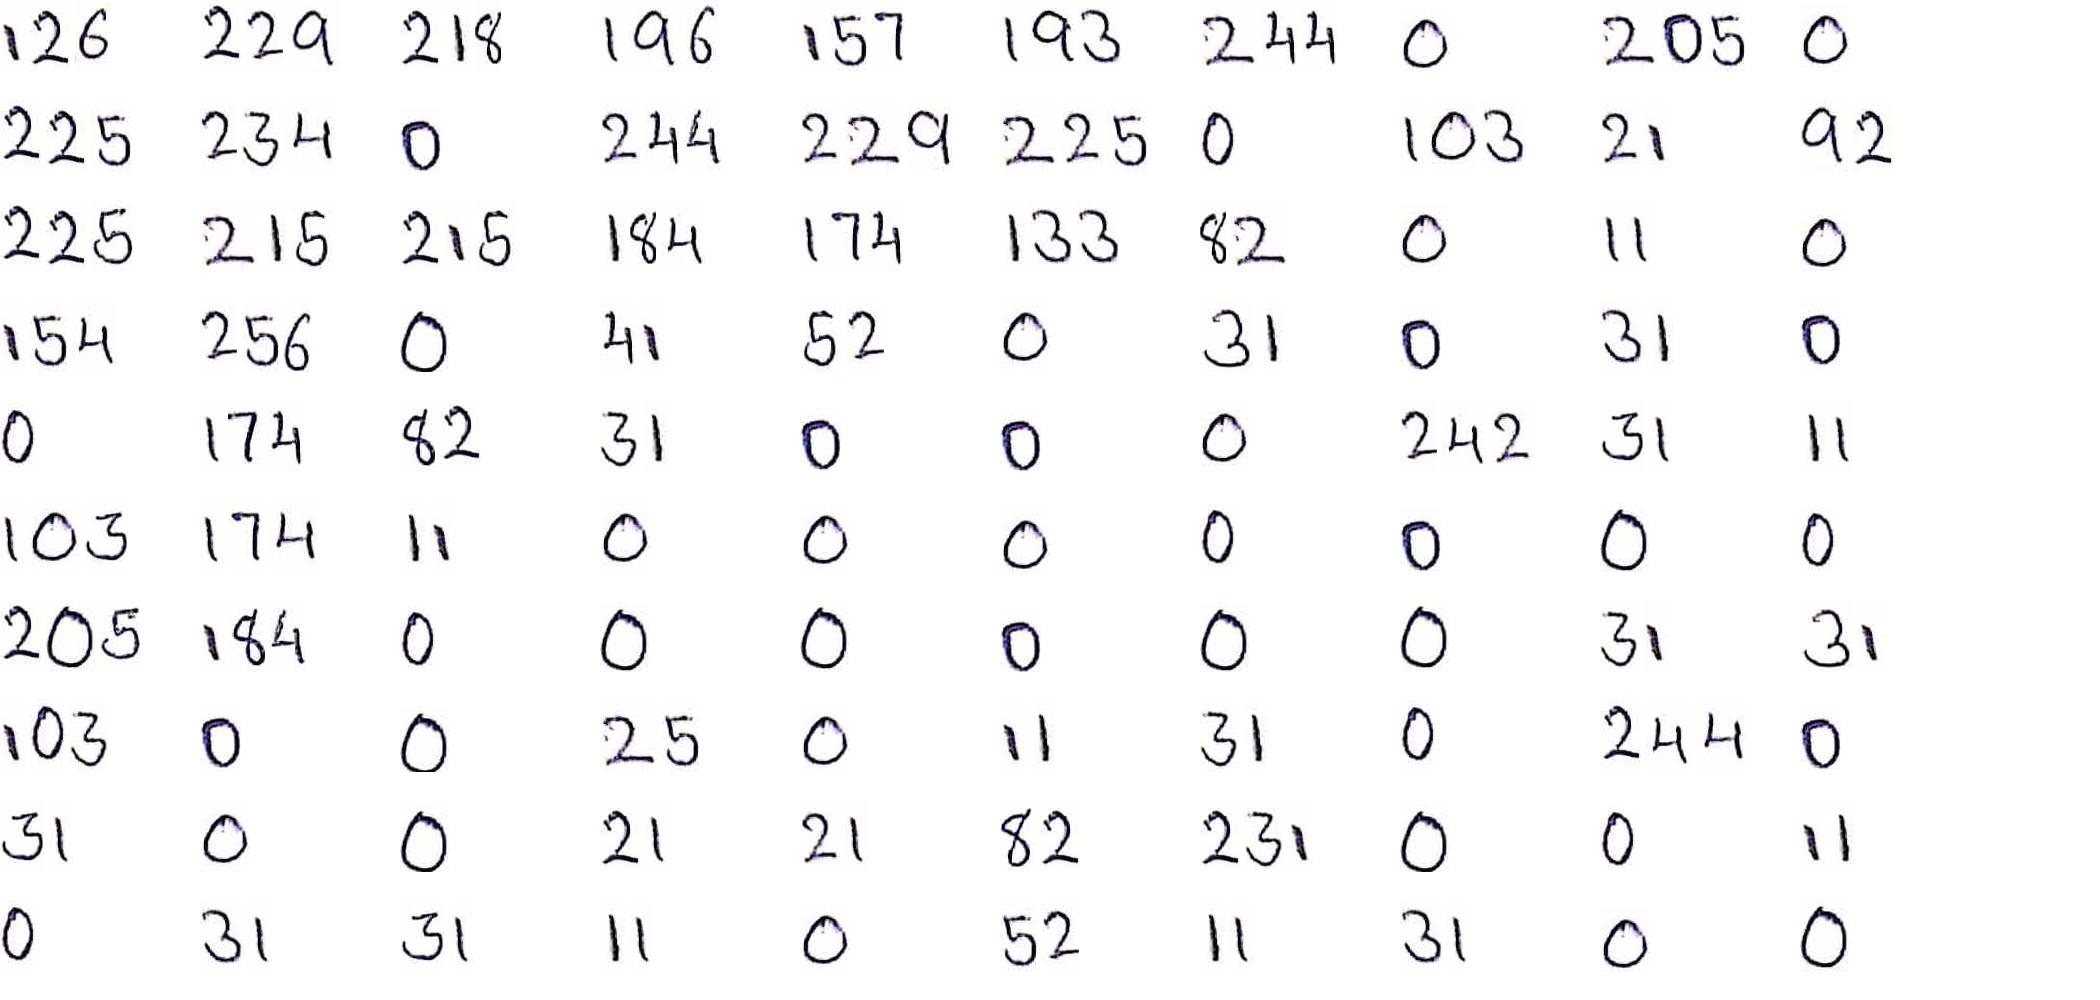 126 229 218 196 157 193 244 0 205 0
225 234 0 244 229 225 0 103 21 92
225 215 215 184 174 133 82 0 11 0
154 256 0 41 52 0 31 0 31 0
0 174 82 31 0 0 0 242 31 11
103 174 11 0 0 0 0 0 0 0
205 184 0 0 0 0 0 0 31 31
103 0 0 25 0 11 31 0 244 0
31 0 0 21 21 82 231 0 0 11
0 31 31 11 0 52 11 31 0 0